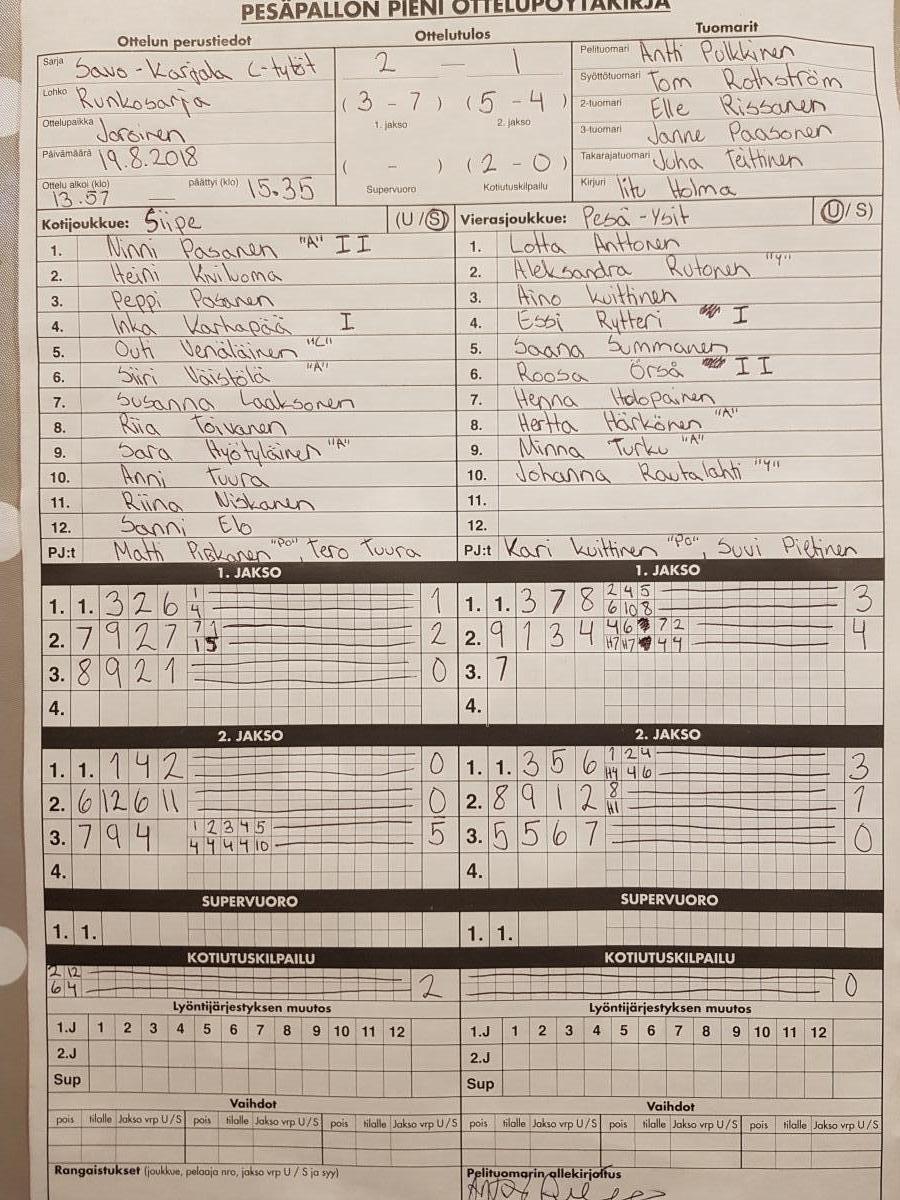 PESÄPALLON PIENI OTTELUPÖYTÄKIRJA
Ottelun perustiedot
Sarja Savo-Karjala C-tytöt
Lohko Runkosarja
Ottelupaikka Joroinen
Päivämäärä 19.8.2018
Ottelu alkoi (klo) 13.57 — päättyi (klo) 15.35
Ottelutulos
2 — 1
(3 - 7) (5 - 4)
1. jakso 2. jakso
( - ) (2 - 0)
Supervuoro Kotiutuskilpailu
Tuomarit
Pelituomari Antti Pulkkinen
Syöttötuomari Tom Rothström
2-tuomari Elle Rissanen
3-tuomari Janne Paasonen
Takarajatuomari Juha Teittinen
Kirjuri Iitu Holma
Kotijoukkue: Siipe (U/S)
1. Ninni Pasanen "A" II
2. Heini Kniivoma
3. Peppi Pasanen
4. Inka Karhapää I
5. Outi Venäläinen "C"
6. Siiri Väistölä "A"
7. Susanna Laaksonen
8. Riia Toivanen
9. Sara Hyötyläinen "A"
10. Anni Tuura
11. Riina Niskanen
12. Sanni Elo
PJ:t Matti Pirskanen "Po", Tero Tuura
Vierasjoukkue: Pesä-Ysit (U/S)
1. Lotta Anttonen
2. Aleksandra Rutonen "Y"
3. Aino Kuittinen
4. Essi Rytteri I
5. Saana Summanen
6. Roosa Örså II
7. Henna Holopainen
8. Hertta Härkönen "A"
9. Minna Turku "A"
10. Johanna Rautalahti "Y"
11.
12.
PJ:t Kari Kuittinen "Po", Suvi Pietinen
1. JAKSO
1. 1. 3 2 6 1 1
4
2. 7 9 2 7 7 1 2
1 5
3. 8 9 2 1 0
4.
1. JAKSO
1. 1. 3 7 8 2 4 5 3
6 10 8
2. 9 1 3 4 4 6 7 2 4
H7 H7 4 4
3. 7
4.
2. JAKSO
1. 1. 1 4 2 0
2. 6 12 6 11 0
3. 7 9 4 1 2 3 4 5 5
4 4 4 4 10
4.
2. JAKSO
1. 1. 3 5 6 1 2 4 3
H4 4 6
2. 8 9 1 2 8 1
H1
3. 5 5 6 7 0
4.
SUPERVUORO
1. 1.
SUPERVUORO
1. 1.
KOTIUTUSKILPAILU
2 12 2
6 4
KOTIUTUSKILPAILU
0
Lyöntijärjestyksen muutos
1.J 1 2 3 4 5 6 7 8 9 10 11 12
2.J
Sup
Lyöntijärjestyksen muutos
1.J 1 2 3 4 5 6 7 8 9 10 11 12
2.J
Sup
Vaihdot
pois tilalle Jakso vrp U/S pois tilalle Jakso vrp U/S pois tilalle Jakso vrp U/S
Vaihdot
pois tilalle Jakso vrp U/S pois tilalle Jakso vrp U/S pois tilalle Jakso vrp U/S
Rangaistukset (joukkue, pelaaja nro, jakso vrp U/S ja syy)
Pelituomarin allekirjoitus